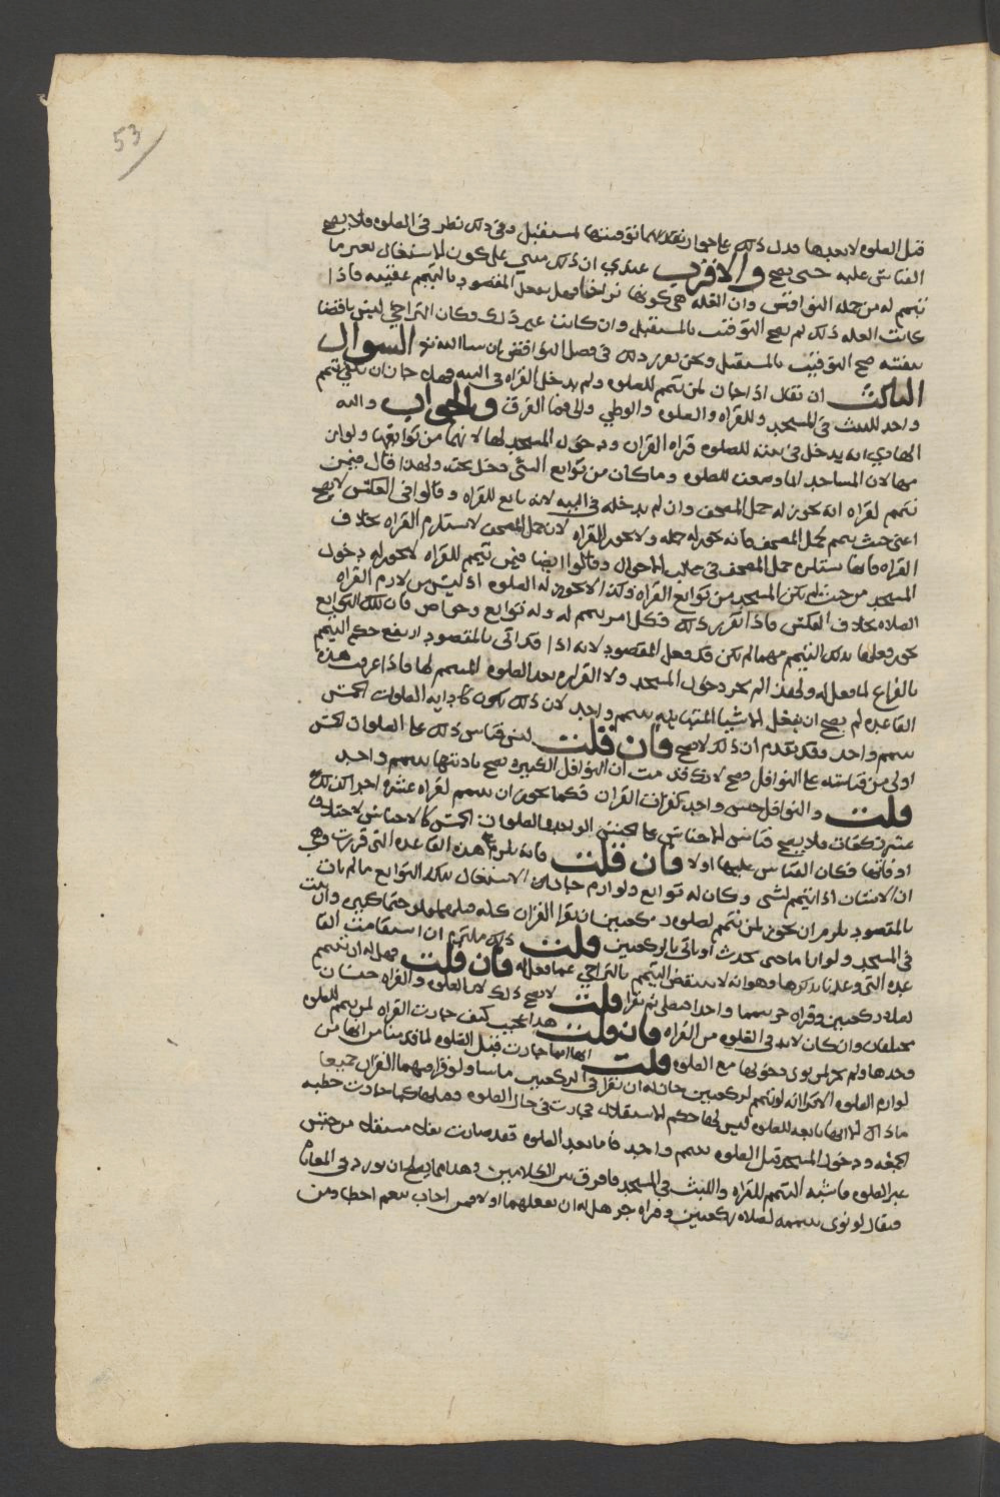 53
قبل الصلوه لا بعدها فدل ذلك على جواز تقدمها توقيتها لمستقبل وفي ذلك نظر في الصلوه ولا يصح
القياس عليه حتى يصح والاقرب عندي ان ذلك مبني على كون الاستغال بغير ما
تيمم له من جمله النواقض وان العله هي كونها تراخيا وهل بفعل المقصود بالتيمم عقيبه فاذا
كانت العله ذلك لم يصح التوقيت بالمستقبل وان كانت غير ذلك وكان التراخي ليس ناقضا
بنفسه صح التوقيت بالمستقبل ونحن نقرر ذلك في فصل النواقض ان شا الله تعالى السوال
الثالث ان يقال اذا جاز لمن تيمم للصلوه ولم يدخل القراه في النيه فهل جاز ان يكفي تيمم
واحد للبث في المسجد وللقراه والصلوه والوطي والا فما الفرق والجواب والله
الهادي انه يدخل في نيته للصلوه قراه القران ودخول المسجد لها لانهما من توابعها ولوازمها
لان المساجد انما وضعت للصلوه وما كان من توابع الشي دخل تحته ولهذا قال فيمن
تيمم لقراه انه يجوز له حمل المصحف وان لم يدخله في النيه لانه تابع للقراه وقالوا في العكس لا يصح
اعني حيث تيمم لحمل المصحف فانه يجوز له حمله ولا يجوز القراه لان حمل المصحف لا يستلزم القراه بخلاف
القراه فانها تستلزم حمل المصحف في غالب الاحوال وقالوا ايضا فيمن تيمم للقراه لا يجوز له دخول
المسجد من حيث لم يكن المسجد من توابع القراه وكذا لا يجوز له الصلوه اذ ليس من لازم القراه
الصلاه بخلاف العكس فاذا تقرر ذلك فكل امر تيمم له وله توابع وخواص فان تلك التوابع
يجوز فعلها بذلك التيمم مهما لم يكن قد فعل المقصود لانه اذا قد اتى بالمقصود ارتفع حكم التيمم
بالفراغ لما فعل له ولهذا لم يجز دخول المسجد ولا القراه بعد الصلوه المتيمم لها فاذا عرفت هذه
القاعده لم يصح ان يفعل الاشيا المتباينه بتيمم واحد لان ذلك يكون كتاديه الصلوات الخمس
بتيمم واحد وقد تقدم ان ذلك لا يصح فان قلت ليس قياس ذلك على الصلوات الخمس
اولى من قياسه على النوافل وصح لانك قد مت ان النوافل الكثيره يصح تاديتها بتيمم واحد
قلت والنوافل جنس واحد كقرات القران فكما يجوز ان تيمم لقراه عشره اجزا كذلك
عشر ركعات ولا يصح قياس الاجناس على الجنس الواحد والصلوات الخمس كالاجناس لاختلاف
اوقاتها فكان القياس عليها اولا فان قلت فانه يلزم على هذه القاعده التي قررت وهي
ان الانسان اذا تيمم لشي وكان له توابع ولوازم جاز له الاستغال بتلك التوابع ما لم يات
بالمقصود يلزم ان يجوز لمن تيمم لصلوه ركعتين ان يقرا القران كله
في المسجد ولو اياما حتى يحدث او ياتي بالركعتين قلت ذلك ملتزم ان استقامت القا
عده التي وعدنا بذكرها وهو انه لا ينتقض التيمم بالتراخي عما فعل له فان قلت فهل له ان تيمم
لصلاه ركعتين وقراه جز بينهما واحدا فصلى ثم يقرا قلت لا يصح ذلك لان الصلوه والقراه جنسان
مختلفان وان كان لا بد في الصلوه من القراه فان قلت هذا عجيب كيف جازت القراه لمن تيمم للصلوه
وحدها ولم يجز لمن نوى دخولها مع الصلوه قلت انها انما جازت قبل الصلوه لما قدمنا من انها من
لوازم الصلوه الا ترا انه لو تيمم لركعتين جاز له ان يقرا في الركعتين ما شا ولو قرا فيهما القران جميعا
ماذاك الا انها تابعه للصلوه ليس لها حكم الاستقلال فجازت في حال الصلوه وقبلها كما جازت خطبه
الجمعه ودخول المسجد قبل الصلوه بتيمم واحد فاما بعد الصلوه فقد صارت بفعل مستقل من جنس
غير الصلوه فاشبه التيمم للقراه واللبث في المسجد فافرق بين الكلامين وهذا مما يصلح ان يورد في المعاياه
فيقال لو نوى بتيممه لصلاه ركعتين وقراه جز هل له ان يفعلهما اولا فمن اجاب بنعم اخطا ومن